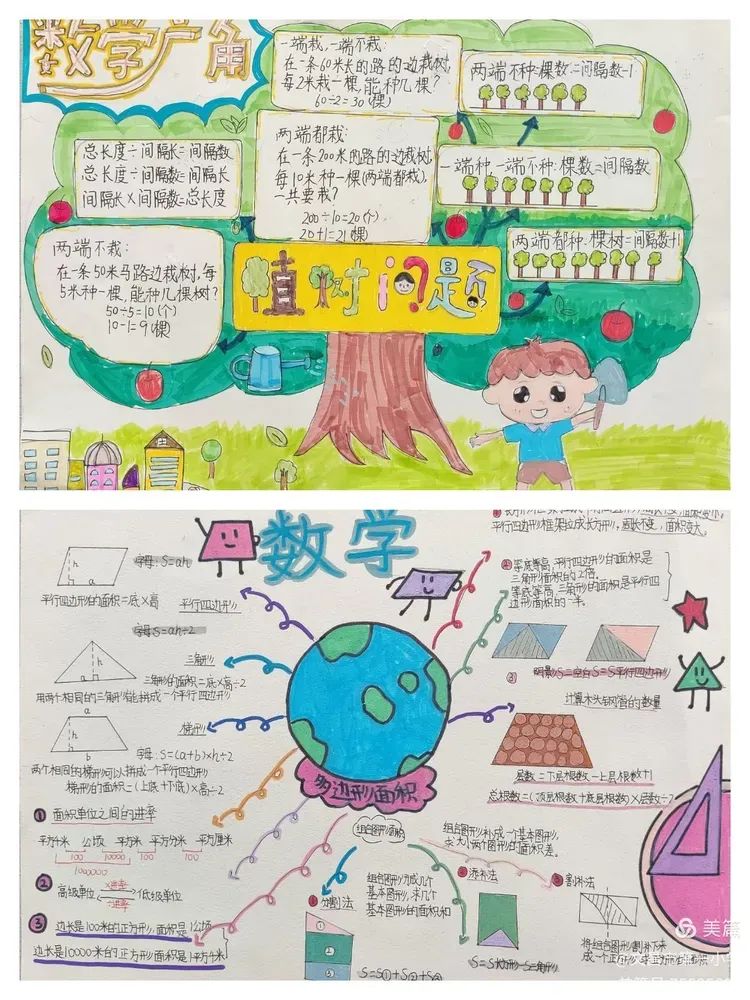 数学广角
一端栽,一端不栽:
在一条60米长的路的边栽树,
每2米栽一棵,能种几棵?
60÷2=30(棵)
两端不种:棵数=间隔数-1
总长度÷间隔长=间隔数
总长度÷间隔数=间隔长
间隔长×间隔数=总长度
两端都栽:
在一条200米的路的边栽树,
每10米种一棵(两端都栽),
一共要栽?
200÷10=20(个)
20+1=21(棵)
一端种,一端不种:棵数=间隔数
两端都种:棵树=间隔数+1
两端不栽:
在一条50米马路边栽树,每
5米种一棵,能种几棵树?
50÷5=10(个)
10-1=9(棵)
植树问题
数学
平行四边形框架拉成长方形,周长不变,面积变大。
字母:S=ah
h
a
平行四边形的面积=底×高
平行四边形
等底等高,平行四边形的面积是
三角形面积的2倍。
等底等高,三角形的面积是平行四
边形面积的一半。
字母S=ah÷2
h
a
三角形
三角形的面积=底×高÷2
用两个相同的三角形能拼成一个平行四边形
③
阴影S=空白S=S平行四边形
计算木头钢管的数量
a
h
b
梯形
字母:S=(a+b)×h÷2
两个相同的梯形可以拼成一个平行四边形
梯形的面积=(上底+下底)×高÷2
层数=下层根数-上层根数+1
总根数=(顶层根数+底层根数)×层数÷2
多边形面积
① 面积单位之间的进率
平方千米 公顷 平方米 平方分米 平方厘米
100 10000 100 100
1000000
② 高级单位 ×进率 ÷进率 低级单位
③ 边长是100米的正方形,面积是1公顷
边长是1000米的正方形面积是1平方千米
组合图形面积
组合图形补成一个基本图形,
求大小两个图形的面积差。
组合图形分成几个
基本图形,求几个
基本图形的面积和
分割法
① ② ③
S=S①+S②+S③
添补法
S=S长方形-S三角形
割补法
将组合图形割补下来
美篇